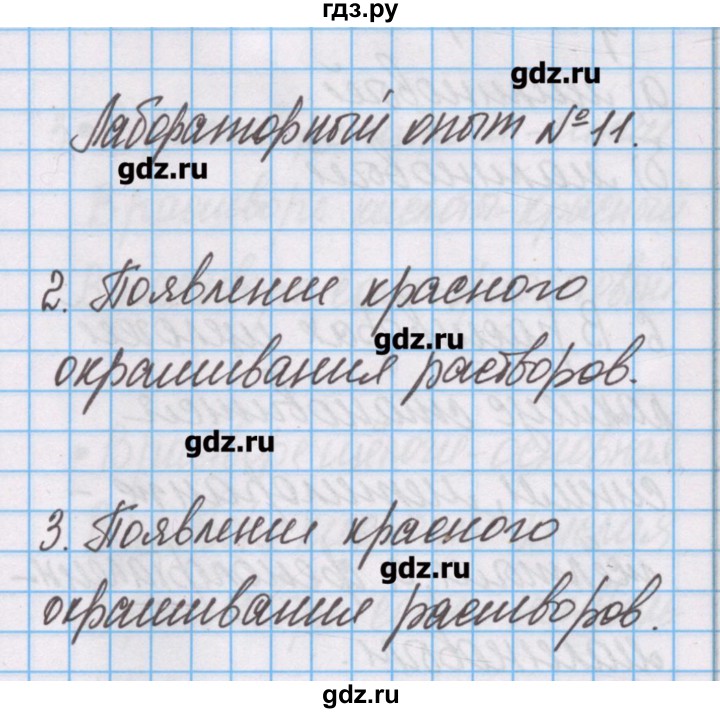 гдз.ру
gdz.ru
Лабораторный опыт №11.
gdz.ru
2. Появление красного
gdz.ru
окрашивания растворов.
gdz.ru
3. Появление красного
gdz.ru
окрашивания растворов.
gdz.ru